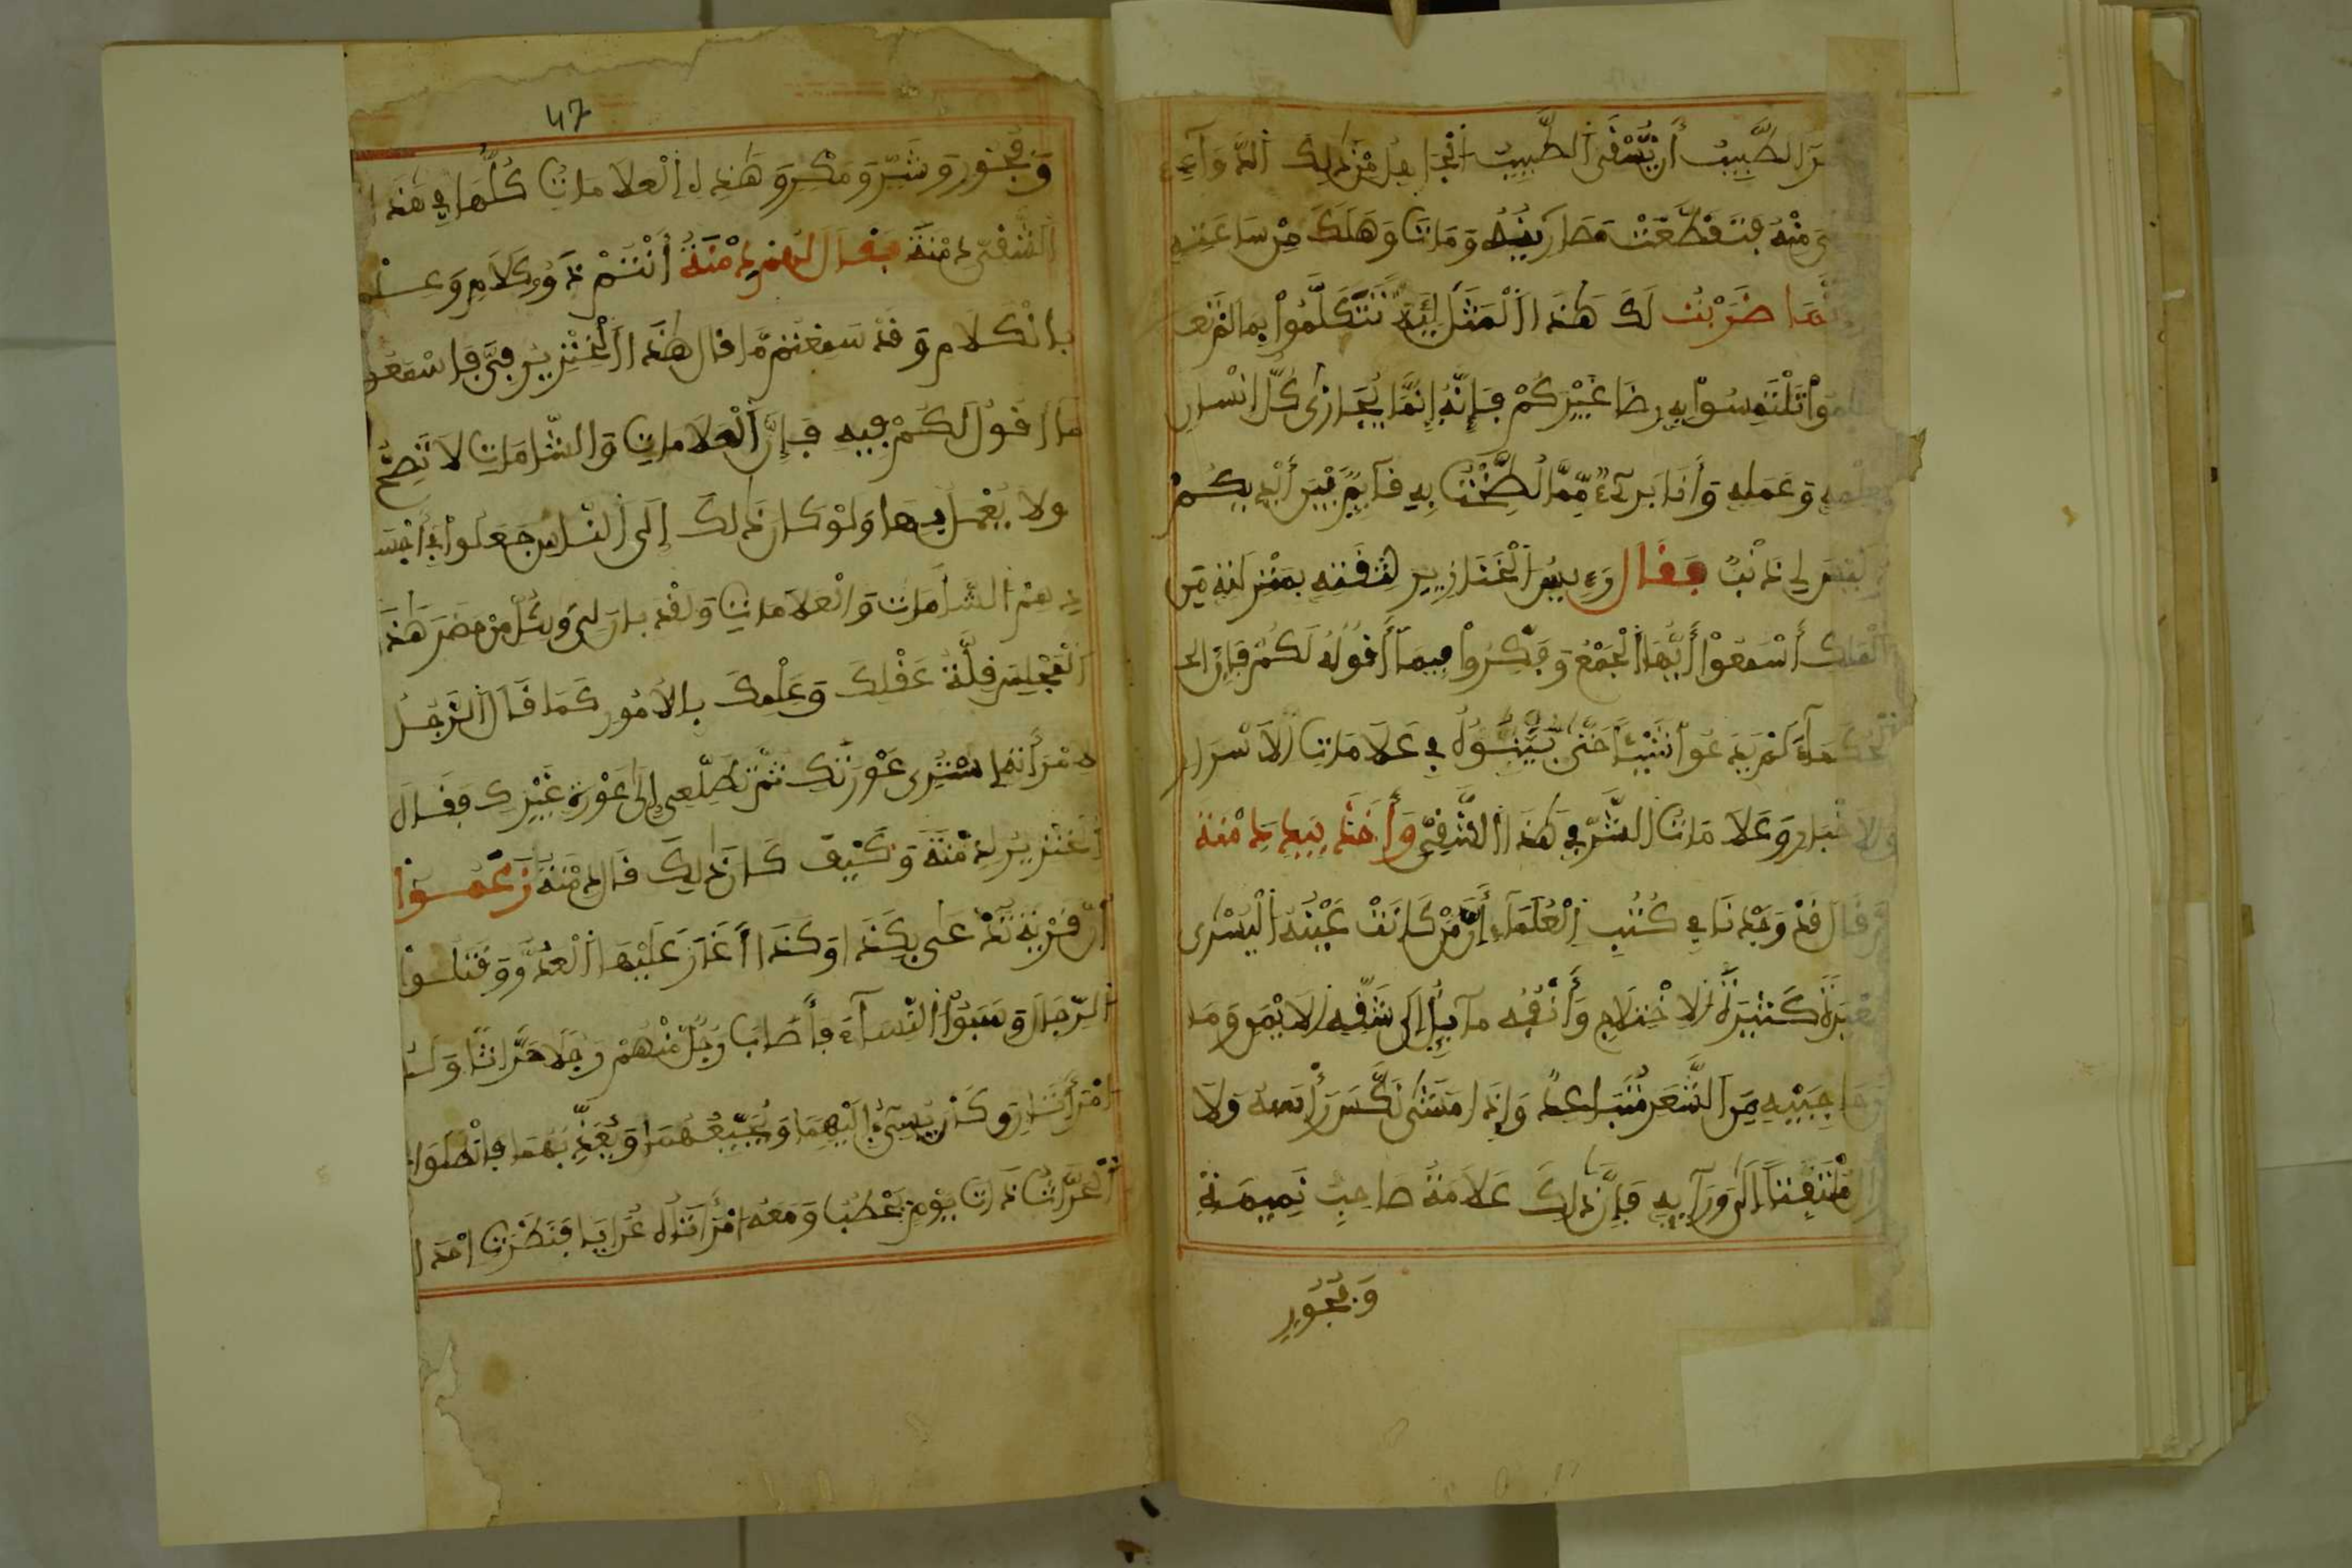 الطبيبُ أن يُّسْقَى الطَّبِيبُ الجاهل من ذلك الدَّوَآءِ
مِنْهُ فَتَقَطَّعَتْ مَصَارِينُهُ وَمَاتَ وَهَلَكَ مِنْ سَاعَتِهِ
ضَرَبْتُ لَكَ هَٰذَا الْمَثَلَ لِئَلَّا تَتَكَلَّمُواْ بِمَا لَمْ
تَلْتَمِسُواْ بِهِ رِضَا غَيْرِكُمْ فَإِنَّهُ إِنَّمَا يُجَازَىٰ كُلُّ إِنْسَانٍ
وَعَمَلِهِ وَأَنَا بَرِيٓءٌ مِّمَّا لُطِّخْتُ بِهِ قَآئِمٌ بَيْنَ أَيْدِيكُمْ
لِي ذَنْبٌ فَقَالَ رَءِيسُ الْخَنَازِيرِ لِثِقَتِهِ بِمَنْزِلَتِهِ مِنَ
الْمَلِكِ أَسْمَعُواْ أَيُّهَا الْجَمْعُ وَفَكِّرُواْ فِيمَآ أَقُولُهُ لَكُمْ فَإِنَّ الْ
حُكَمَآءَ لَمْ يَدَعُواْ شَيْئًا حَتَّىٰ بَيَّنُوهُ فِي عَلَامَاتِ الْأَسْرَارِ
وَالأَخْبَارِ وَعَلَامَاتُ الشَّرِّ فِي هَٰذَا الشَّقِيِّ وَأَخَذَ بِيَدِ دِمْنَةَ
ثُمَّ قَالَ قَدْ وَجَدْنَا فِي كُتُبِ الْعُلَمَاءِ أَنَّ مَنْ كَانَتْ عَيْنُهُ الْيُسْرَىٰ
صَغِيرَةً كَثِيرَةَ الِاخْتِلَاجِ وَأَنْفُهُ مَآئِلٌ إِلَىٰ شَقِّهِ الْأَيْمَنِ وَمَا
حَاجِبَيْهِ مِنَ الشَّعَرِ مُتَبَاعِدٌ وَإِذَا مَشَىٰ نَكَّسَ رَأْسَهُ وَلَا
مُلْتَفِتًا إِلَىٰ وَرَآئِهِ فَإِنَّ ذَٰلِكَ عَلَامَةُ صَاحِبِ نَمِيمَةٍ
وَفُجُورٍ
47
وَفُجُورٍ وَشَرٍّ وَمَكْرٍ وَهَٰذِهِ الْعَلَامَاتُ كُلُّهَا فِي هَٰذَا
الشَّقِيِّ دِمْنَةَ فَقَالَ لَهُمْ دِمْنَةُ أَنْتُمْ ذَوُو كَلَامٍ وَعِلْمٍ
بِالْكَلَامِ وَقَدْ سَمِعْتُمْ مَّا قَالَ هَٰذَا الْخِنْزِيرُ فِيَّ فَاسْمَعُوا
مَا أَقُولُ لَكُمْ فِيهِ فَإِنَّ الْعَلَامَاتِ وَالشَّامَاتِ لَا تَصِحُّ
وَلَا يُعْمَلُ بِهَا وَلَوْ كَانَ ذَٰلِكَ إِلَى النَّاسِ جَعَلُوا فِي
الشَّامَاتِ وَالْعَلَامَاتِ وَلَقَدْ بَانَ لِي وَلِكُلِّ مَنْ حَضَرَ هَٰذَا
الْمَجْلِسَ قِلَّةُ عَقْلِكَ وَعِلْمِكَ بِالْأُمُورِ كَمَا قَالَ الرَّجُلُ
لِامْرَأَتِهِ اسْتُرِي عَوْرَتَكِ ثُمَّ تَطَلَّعِي إِلَىٰ عَوْرَةِ غَيْرِكِ فَقَالَ
الْخِنْزِيرُ لِدِمْنَةَ وَكَيْفَ كَانَ ذَٰلِكَ قَالَ دِمْنَةُ زَعَمُوا
أَنَّ قَرْيَةً تُدْعَىٰ بِكَذَا وَكَذَا أَغَارَ عَلَيْهَا الْعَدُوُّ وَقَتَلُوا
الرِّجَالَ وَسَبَوُا النِّسَآءَ فَأَصَابَ رَجُلٌ مِّنْهُمْ رَجُلًا حَرَّاثًا وَلَهُ
امْرَأَتَانِ وَكَانَ يُسِيٓءُ إِلَيْهِمَا وَيُجِيعُهُمَا وَيُعَذِّبُهُمَا فَانْطَلَقَ
الْحَرَّاثُ ذَاتَ يَوْمٍ يَحْطُبُ وَمَعَهُ امْرَأَتَاهُ عُرَايَا فَنَظَرَتْ احدا